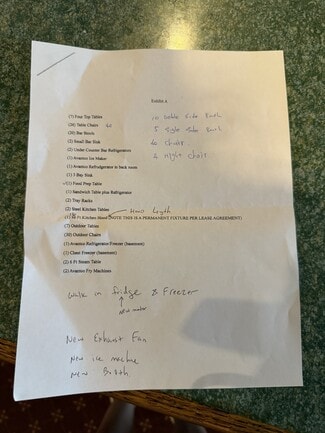 Exhibit A
(7) Four Top Tables
(28) Table Chairs 40
(20) Bar Stools
(2) Small Bar Sink
(2) Under Counter Bar Refrigerators
(1) Avantco Ice Maker
(1) Avantco Refrigerator in back room
(1) 3 Bay Sink
(1) Food Prep Table
(1) Sandwich Table plus Refrigerator
(2) Tray Racks
(2) Steel Kitchen Tables
(1) 20 Ft Kitchen Hood (NOTE THIS IS A PERMANENT FIXTURE PER LEASE AGREEMENT)
(7) Outdoor Tables
(30) Outdoor Chairs
(1) Avantco Refrigerator/Freezer (basement)
(1) Chest Freezer (basement)
(2) 6 Ft Steam Table
(2) Avantco Fry Machines
side Booth
5 side Booth
40 chairs
4 chair
Hood length
Walk in fridge & Freezer
new motor
New Exhaust Fan
New ice machine
New Booth